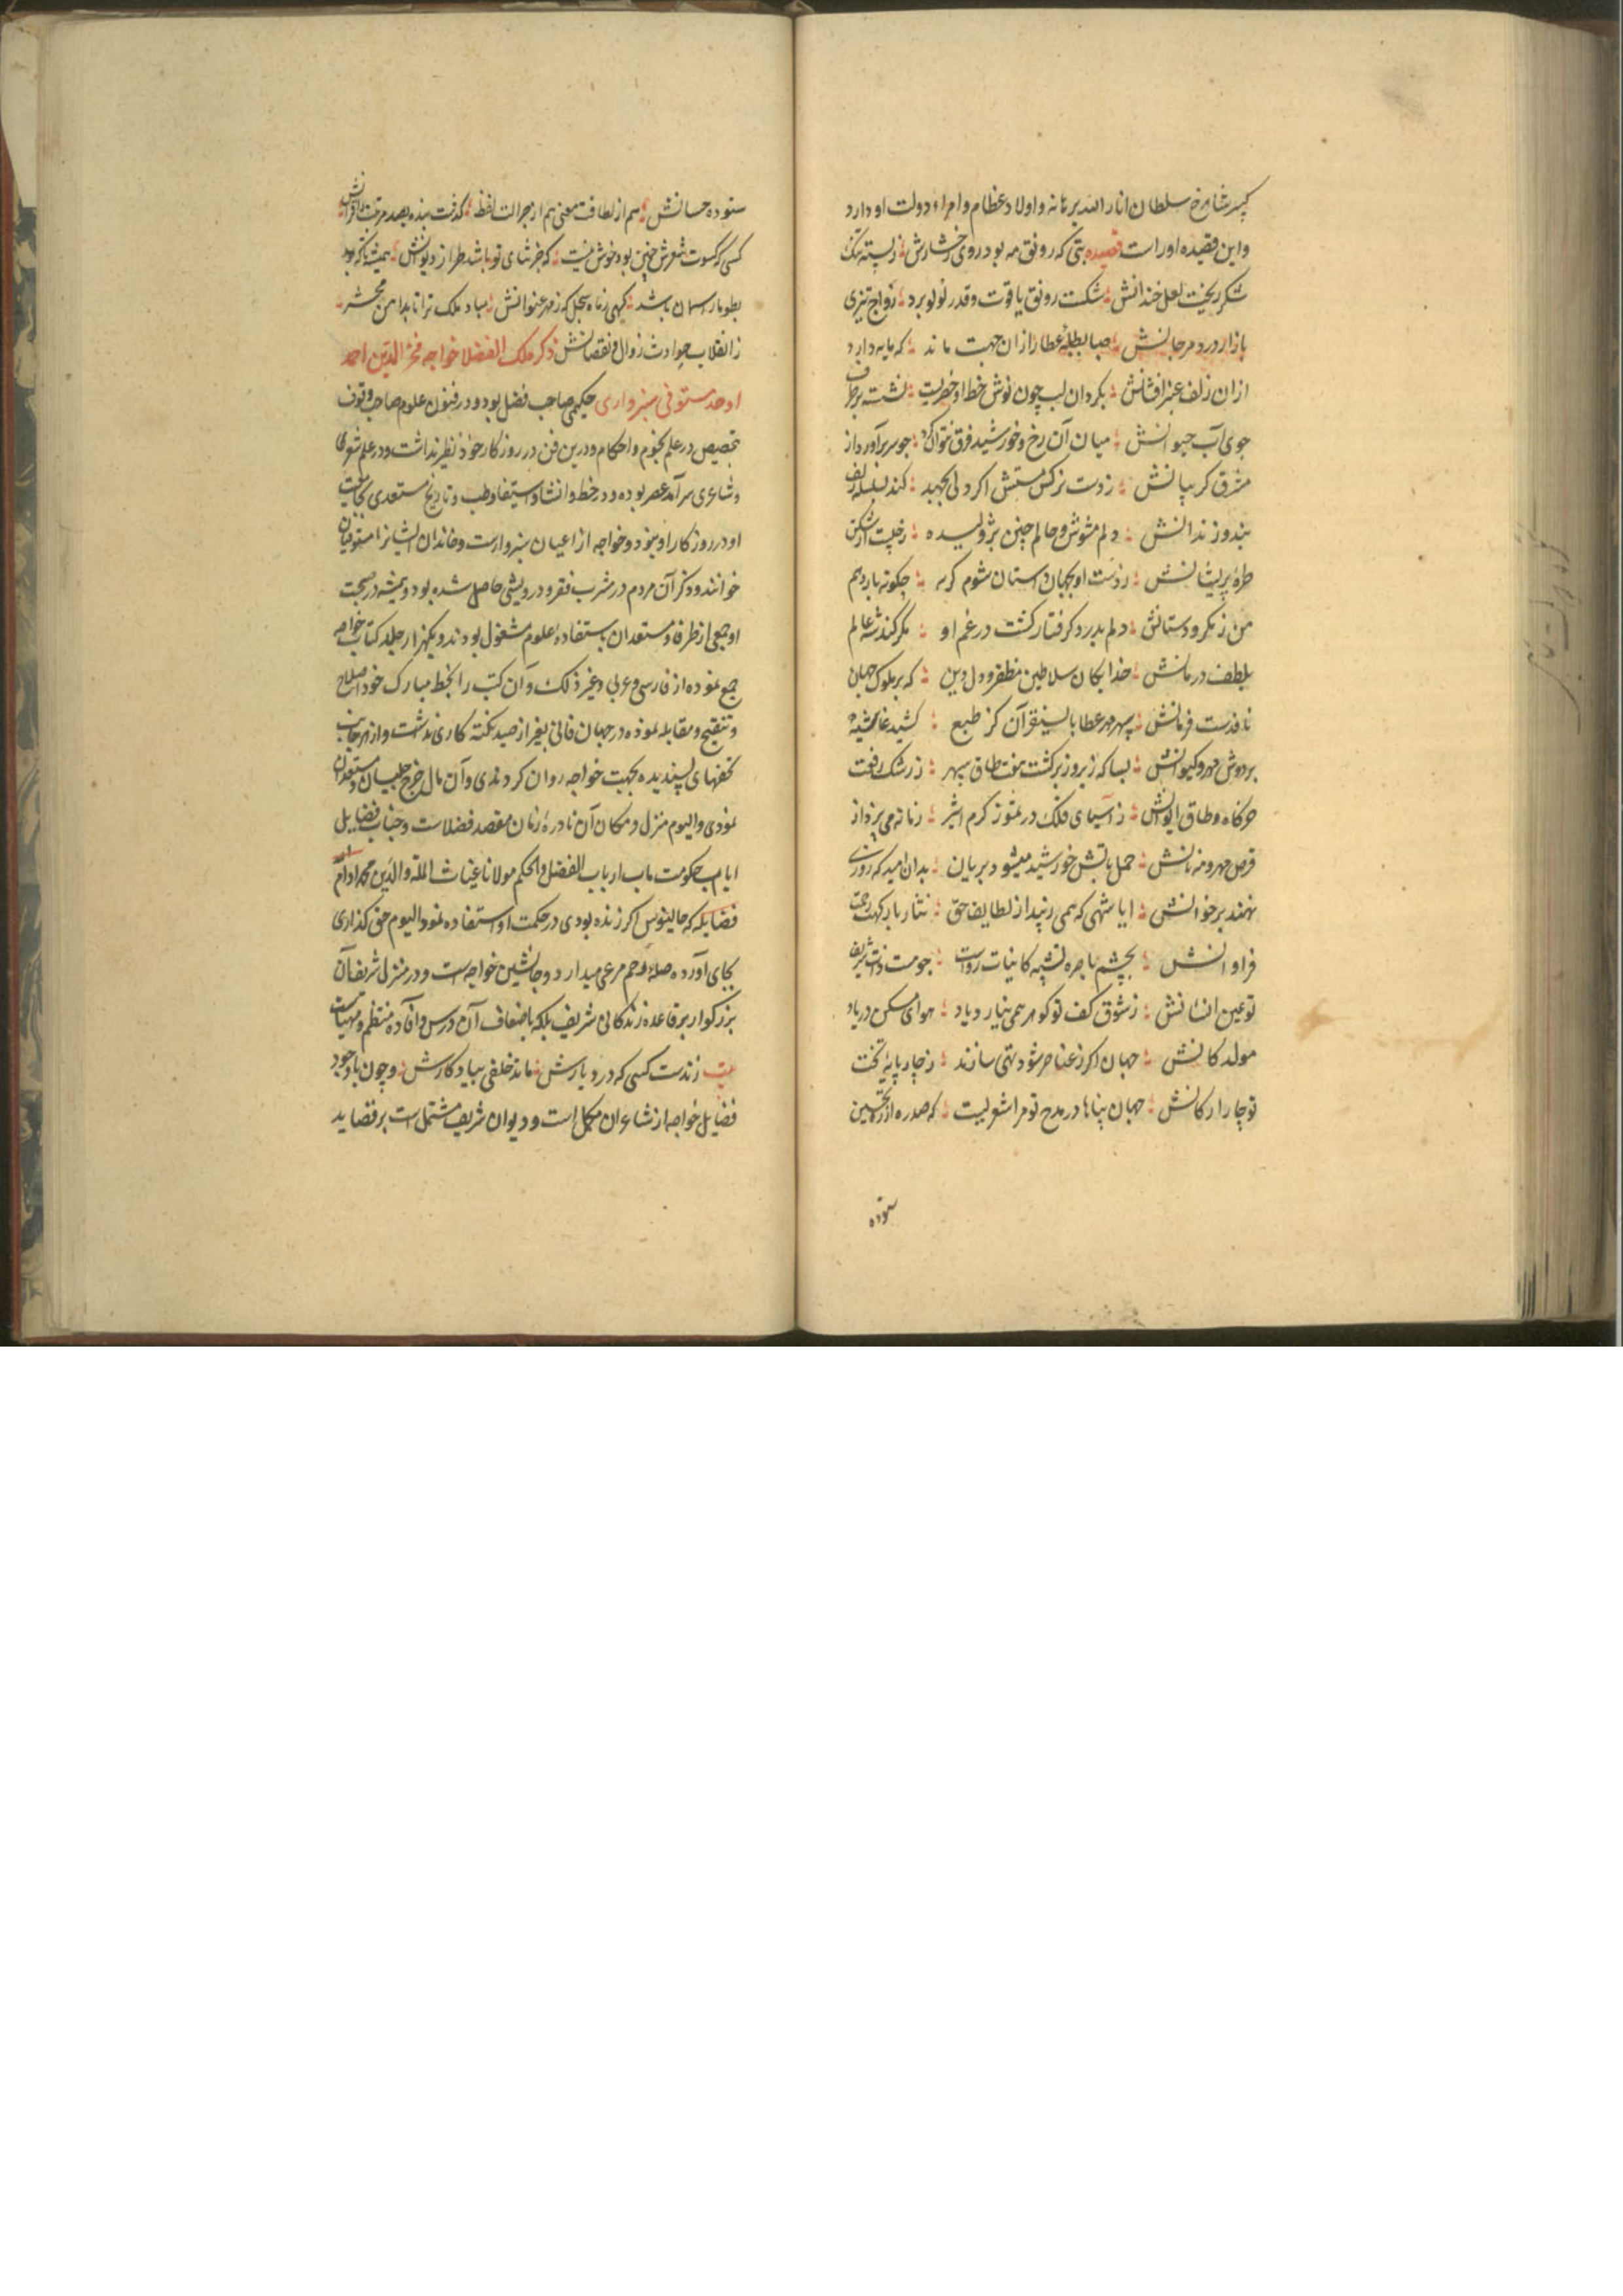 کبیر شاهرخ سلطان انار الله برهانه و اولاد عظام و امراء دولت او دارد
و این قصیده اوراست قصیده بتی که رونق مه بود روی رخشارش ؛ ز پسته تنگ
شکر بریخت لعل خندانش ؛ شکست رونق یاقوت و قدر لولو برد ؛ رواج تیزی
بازار درد مرجانش ؛ صبا بطبلهٔ عطار ازان جهت ماند ؛ که مایه دارد
ازان زلف عنبرافشانش ؛ بکرد ان لب چون نوش خط او خضریست ؛ نشسته برطرف
جوی آب حیوانش ؛ میان آن رخ و خورشید فرق نتوان کرد ؛ چو سر برآورد از
مشرق کریبانش ؛ ز دست نرکس مستش اکر دلی بجهد ؛ کند بسلسله زلف
بند و زندانش ؛ دلم مشوش و حالم چنین پژولیده ؛ ز چیست از شکن
طرهٔ پریشانش ؛ ز دست او بجهان داستان شوم کرنه ؛ چکونه باز رهم
من ز مکر و دستانش ؛ دلم بدرد کرفتار کشت در غم او ؛ مکر کند شه عالم
بلطف درمانش ؛ خدایکان سلاطین مظفر دول و دین ؛ که بر ملوک جهان
نافذست فرمانش ؛ سپهر مهر عطا بایسنقر آن کز طبع ؛ کشید غاشیه
بردوش مهر و کیوانش ؛ بسا که زیر و زبر کشت هفت طاق سپهر ؛ ز رشک رفعت
خرکاه و طاق ایوانش ؛ ز آسیای فلک در تنور کرم اثیر ؛ زمانه می پزد از
قرص مهر و مه نانش ؛ حمل بتابش خورشید میشود بریان ؛ بدان امید که روزی
نهند بر خوانش ؛ ایا شهی که همی زیبد از لطایف حق ؛ نثار بارکهت رحمت
فراوانش ؛ بچشم باصره تشبیه کاینات رواست ؛ چو هست ذات شریف
تو عین انسانش ؛ ز شوق کف تو کوهر همی نیارد یاد ؛ هوای مسکن دریا و
مولد کانش ؛ جهان اکر ز عناصر شود تهی سازند ؛ ز چار پایهٔ تخت
تو چار ارکانش ؛ جهان پناها در مدح تو مرا شعریست ؛ که صدره از ره تحسین
ستوده
ستوده حسانش ؛ هم از لطافت معنی هم از جزالت لفظ ؛ کذشت بنده بصد مرتبت ز اقرانش
کسی که کسوت شعرش چنین بود خوش نیست ؛ که جز ثنای تو باشد طراز دیوانش ؛ همیشه تا که بود
بطومار اسمان باشد ؛ کهی ز ماه سجل که ز مهر عنوانش ؛ مباد ملک ترا تا بدامن محشر ؛
ز انقلاب حوادث زوال و نقصانش ذکر ملک الفضلا خواجه فخر الدین احد
اوحد مستوفی سبزواری حکیمی صاحب فضل بود و در فنون علوم صاحب وقوف
بتخصیص در علم نجوم و احکام و درین فن در روزکار خود نظیر نداشت و در علم شعر
و شاعری سرآمد عصر بوده و در خط و انشا و استیفا و طب و تاریخ مستعدی بجامعیت
او در روزکار او نبود و خواجه از اعیان سبزوارست و خاندان ایشانرا مستوفیان
خوانند و دکر آن مردم در مشرب فقر و درویشی حاصل شده بود و همیشه در صحبت
او جمعی از ظرفا و مستعدان باستفادهٔ علوم مشغول بودند و یکهزار جلد کتاب خواجه
جمع نموده از فارسی و عربی و غیر ذلک و آن کتب را بخط مبارک خود اصلاح
و تنقیح و مقابله نموده در جهان فانی بغیر از صید نکته کاری نداشت و از هر جانب
تحفهای پسندیده بجهت خواجه روان کردندی و آن مال خرج جلیسان و مستعدان
نمودی و الیوم منزل و مکان آن نادرهٔ زمان مقصد فضلاست و جناب فضایل
ایام حکومت ماب ارباب الفضل و الحکم مولانا غیاث المله و الدین محمد ادام
فضایله که جالینوس اکر زنده بودی در حکمت او استفاده نمود الیوم حق کذاری
بجای آورده صلهٔ رحم مرعی میدارد و جانشین خواجه است و در منزل شریف آن
بزرکوار بر قاعده زندکانی شریف بلکه باضعاف آن درس و افاده منتظم و مهیاست
بیت زندست کسی که در دیارش ؛ ماند خلفی بیادکارش ؛ و چون با وجود
فضایل خواجه از شاعران مکمل است و دیوان شریفش مشتمل است بر قصاید